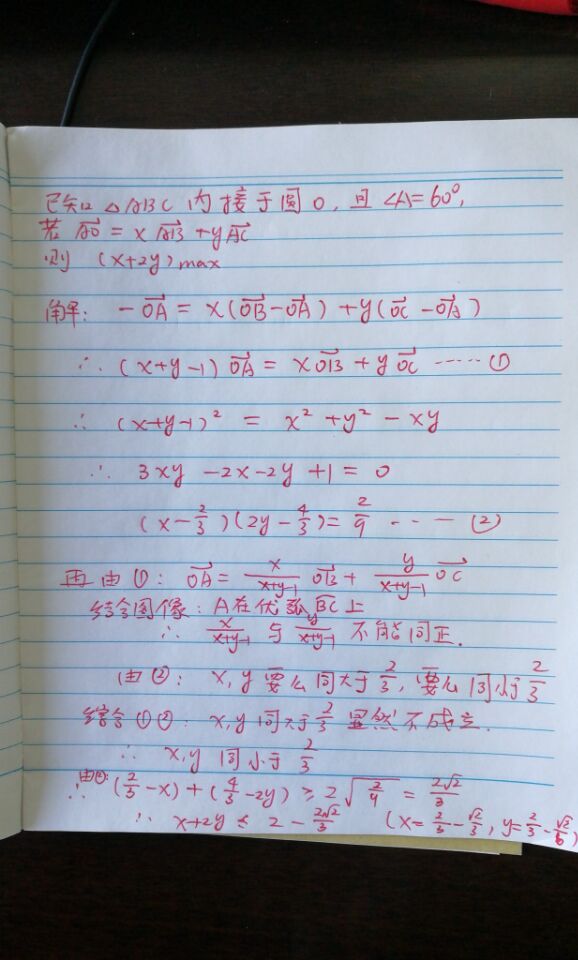 已知 △ABC 内接于圆O，且 ∠A=60°，
若 AO = xAB + yAC
则 (x+2y)max
解: -OA = x(OB-OA) + y(OC-OA)
∴ (x+y-1)OA = xOB + yOC ······①
∴ (x+y-1)² = x²+y²-xy
∴ 3xy-2x-2y+1=0
(x-2/3)(2y-4/3)=2/9 ······②
再由①: OA = x/(x+y-1) OB + y/(x+y-1) OC
结合图像: A在优弧BC上
∴ x/(x+y-1) 与 y/(x+y-1) 不能同正.
由②: x,y 要么同大于2/3, 要么同小于2/3
结合①②: x,y同大于2/3 显然不成立.
∴ x,y 同小于2/3
∴ 由②: (2/3-x)+(4/3-2y) ≥ 2√(2/9) = 2√2/3
∴ x+2y ≤ 2-2√2/3 (x=2/3-√2/3, y=2/3-√2/6)